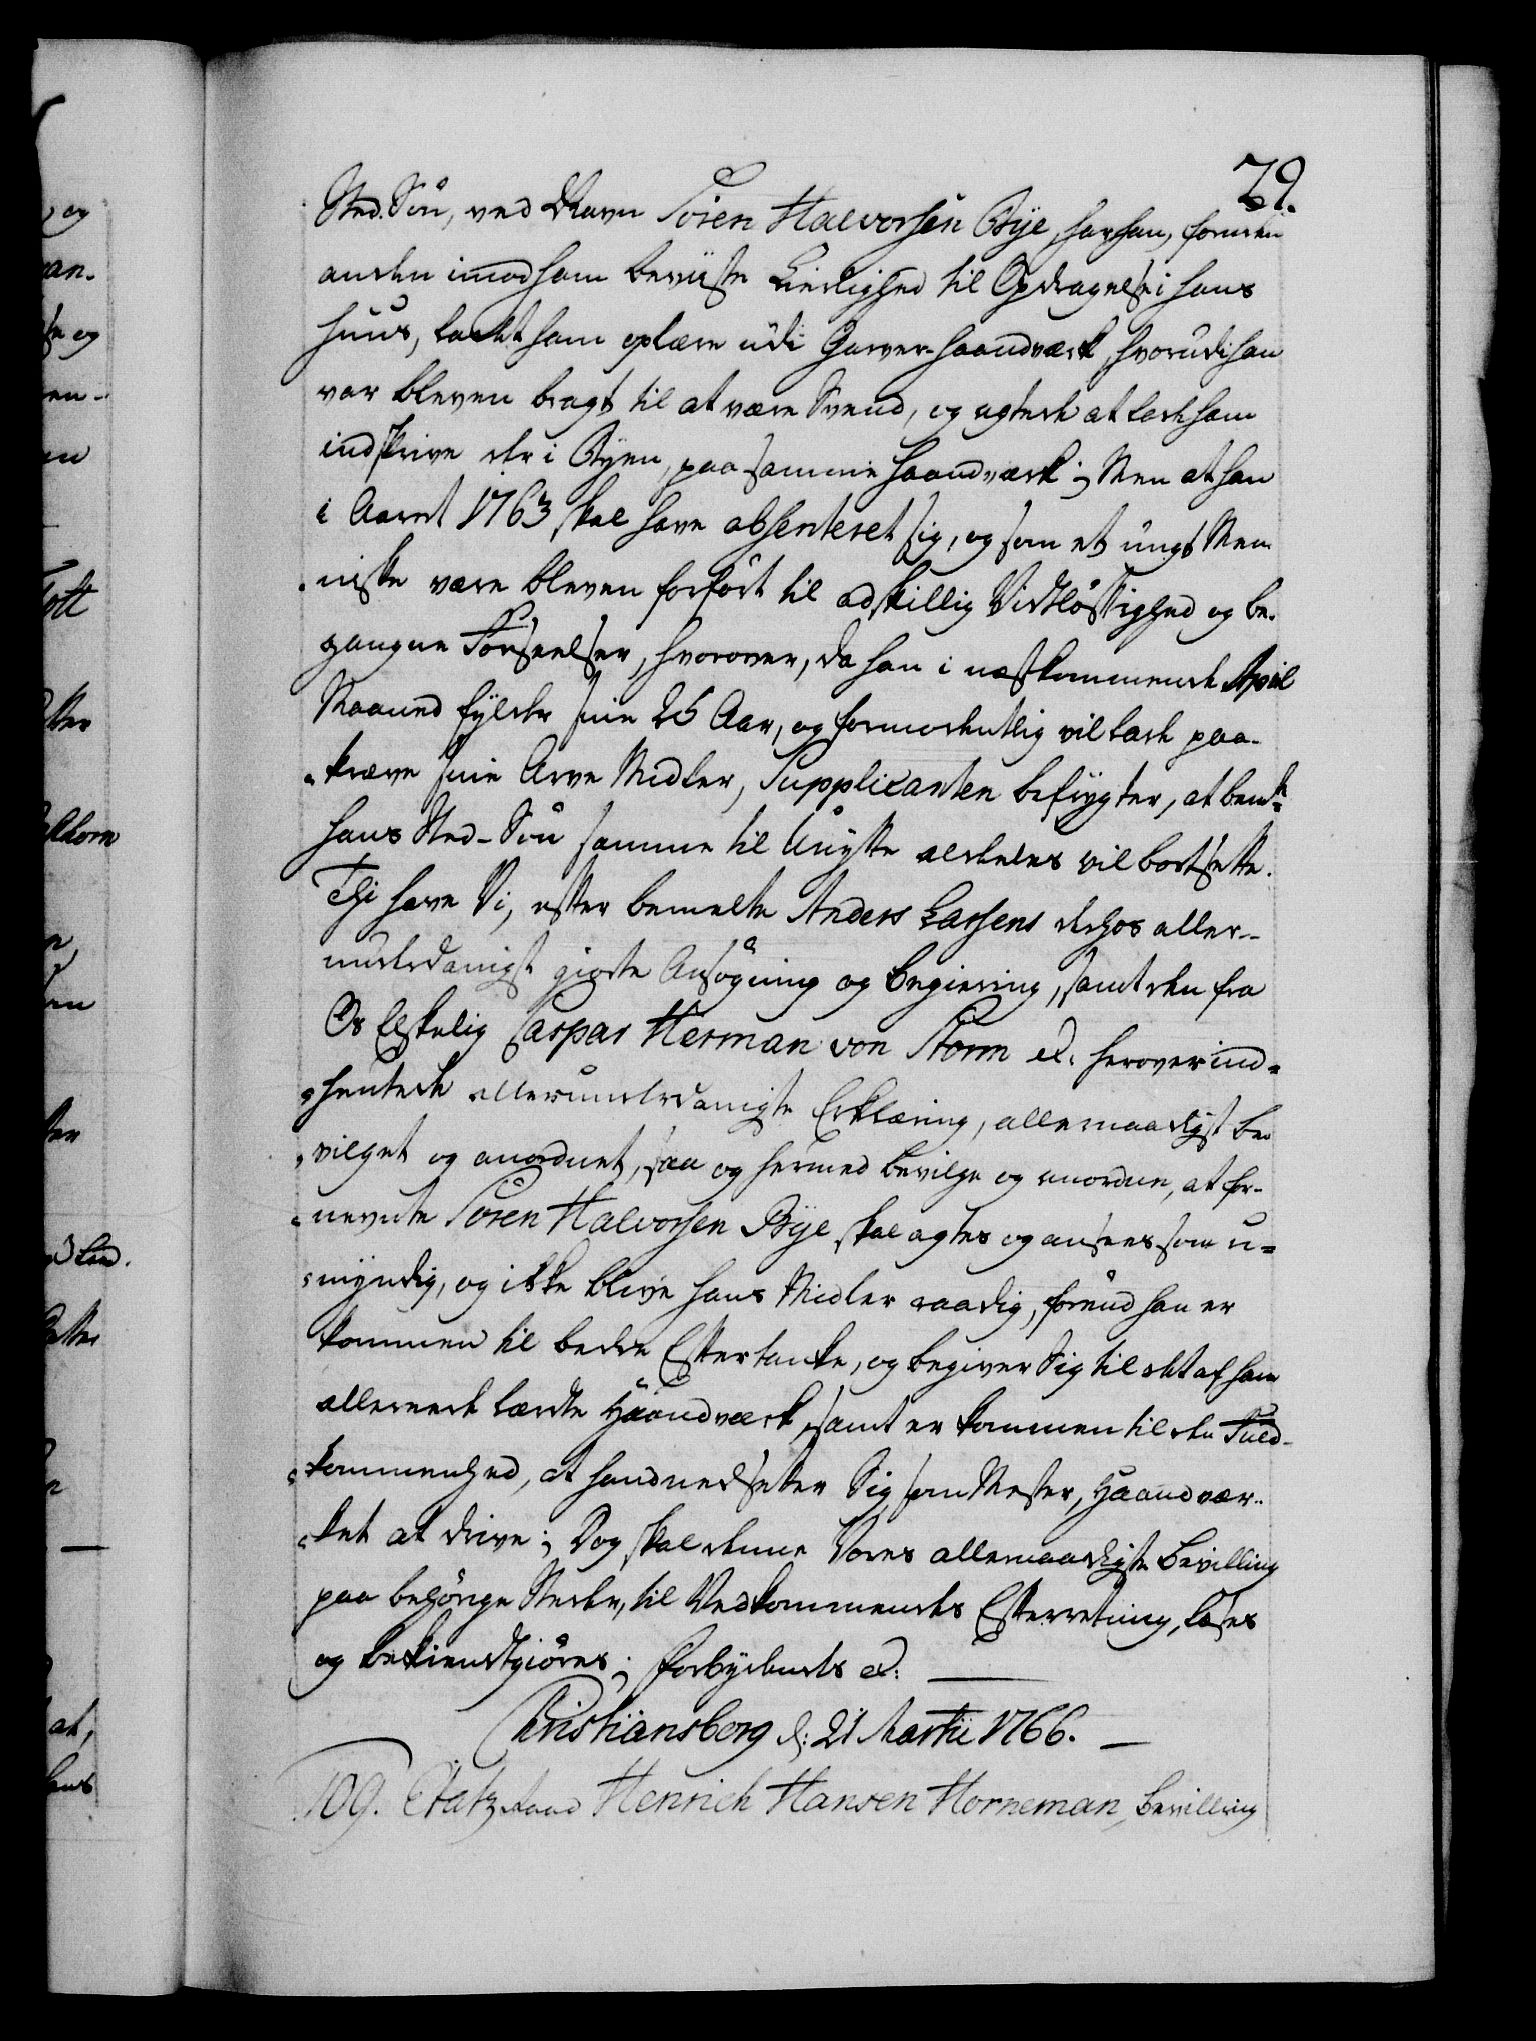 79.
Sted-Sön, ved Navn Sören Halvorsen Bÿe, har han, foruden
anden imod ham beviiste Kierlighed til Opdragelse i hans
Huus, ladet ham oplære udi Garver-Haandværk, hvorudi han
var bleven bragt til at være Svend, og agtede at lade ham
indskrive der i Bÿen, paa samme Haandværk; Men at han
i Aaret 1763 skal have absenteret sig, og som et ungt Men-
niske være bleven forfört til adskillig Vidtlöftighed og be-
gangne Forseelser, hvorover, da han i nestkommende April
Maaned fÿlder sine 25 Aar, og formodentlig vil lade paa-
kræve sine Arve Midler, Supplicanten befrÿgter, at bemte
hans Sted-Sön samme til Unÿtte aldeles vil bortsette.
Thi have Vi, efter bemeldte Anders Larsens derhos aller-
underdanigst giorte Ansögning og Begiering, samt den fra
Os Elskelig Caspar Herman von Storm etc. herover ind-
hentede allerunderdanigste Erklæring, allernaadigst be-
vilget og anordnet, saa og hermed bevilge og anordne, at for-
nevnte Sören Halvorsen Bÿe skal agtes og ansees som u-
mÿndig, og ikke blive hans Midler raadig, förend han er
kommen til bedre Eftertanke, og begiver Sig til det af ham
allerede lærdte Haandværk, samt er kommen til den Fuld-
kommenhed, at hand nedsetter Sig som Mester, Haandvær-
ket at drive; Dog skal denne Vores allernaadigste Bevilling
paa behörige Steder, til Vedkommendes Efterretning, læses
og bekiendtgiöres; Forbÿdendes etc:
Christiansborg d: 21 Martii 1766.
109. Etatz Raad Henrich Hansen Horneman, Bevilling